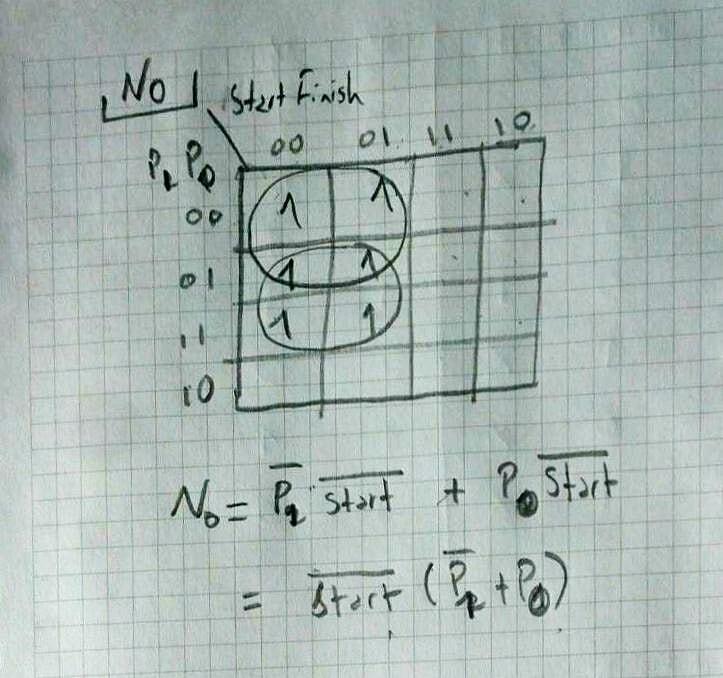 N0 Start Finish
00 01 11 10
P1 P0
00 1 1
01 1 1
11 1 1
10
N0 = P̅1 S̅t̅a̅r̅t̅ + P0 S̅t̅a̅r̅t̅
= S̅t̅a̅r̅t̅ (P̅1 + P0)